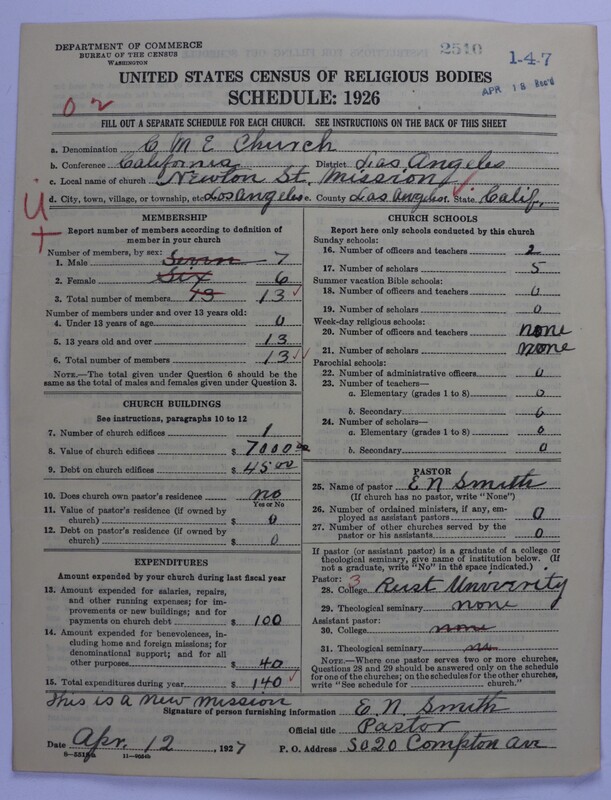 DEPARTMENT OF COMMERCE
BUREAU OF THE CENSUS
WASHINGTON
2510
1-4-7
APR 18 Rec'd
UNITED STATES CENSUS OF RELIGIOUS BODIES
SCHEDULE: 1926
FILL OUT A SEPARATE SCHEDULE FOR EACH CHURCH. SEE INSTRUCTIONS ON THE BACK OF THIS SHEET
a. Denomination C M E Church
b. Conference California District Los Angeles
c. Local name of church Newton St. Mission
d. City, town, village, or township, etc. Los Angeles e. County Los Angeles f. State Calif.
MEMBERSHIP
Report number of members according to definition of member in your church
Number of members, by sex:
1. Male Seven 7
2. Female Six 6
3. Total number of members 13 13
Number of members under and over 13 years old:
4. Under 13 years of age 0
5. 13 years old and over 13
6. Total number of members 13
NOTE.—The total given under Question 6 should be the same as the total of males and females given under Question 3.
CHURCH BUILDINGS
See instructions, paragraphs 10 to 12
7. Number of church edifices 1
8. Value of church edifices $ 7000 00
9. Debt on church edifices $ 45 00
10. Does church own pastor's residence no
Yes or No
11. Value of pastor's residence (if owned by church) $ 0
12. Debt on pastor's residence (if owned by church) $ 0
EXPENDITURES
Amount expended by your church during last fiscal year
13. Amount expended for salaries, repairs, and other running expenses; for improvements or new buildings; and for payments on church debt $ 100
14. Amount expended for benevolences, including home and foreign missions; for denominational support; and for all other purposes $ 40
15. Total expenditures during year $ 140
CHURCH SCHOOLS
Report here only schools conducted by this church
Sunday schools:
16. Number of officers and teachers 2
17. Number of scholars 5
Summer vacation Bible schools:
18. Number of officers and teachers 0
19. Number of scholars 0
Week-day religious schools:
20. Number of officers and teachers none
21. Number of scholars none
Parochial schools:
22. Number of administrative officers 0
23. Number of teachers—
a. Elementary (grades 1 to 8) 0
b. Secondary 0
24. Number of scholars—
a. Elementary (grades 1 to 8) 0
b. Secondary 0
PASTOR
25. Name of pastor E N Smith
(If church has no pastor, write "None")
26. Number of ordained ministers, if any, employed as assistant pastors 0
27. Number of other churches served by the pastor or his assistants 0
If pastor (or assistant pastor) is a graduate of a college or theological seminary, give name of institution below. (If not a graduate, write "No" in the space indicated.)
Pastor: 3
28. College Rust University
29. Theological seminary none
Assistant pastor:
30. College none
31. Theological seminary no
NOTE.—Where one pastor serves two or more churches, Questions 28 and 29 should be answered only on the schedule for one of the churches; on the schedules for the other churches, write "See schedule for church."
This is a new mission
Signature of person furnishing information E. N. Smith
Official title Pastor
Date Apr. 12, 1927 P. O. Address 5020 Compton Ave